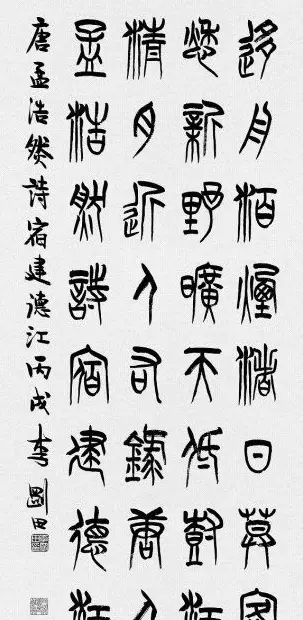 迻舟泊煙渚日莫客
愁新野曠天低樹江
清月近人右錄唐人
孟浩然詩宿建德江
唐孟浩然詩宿建德江丙戌李剛田